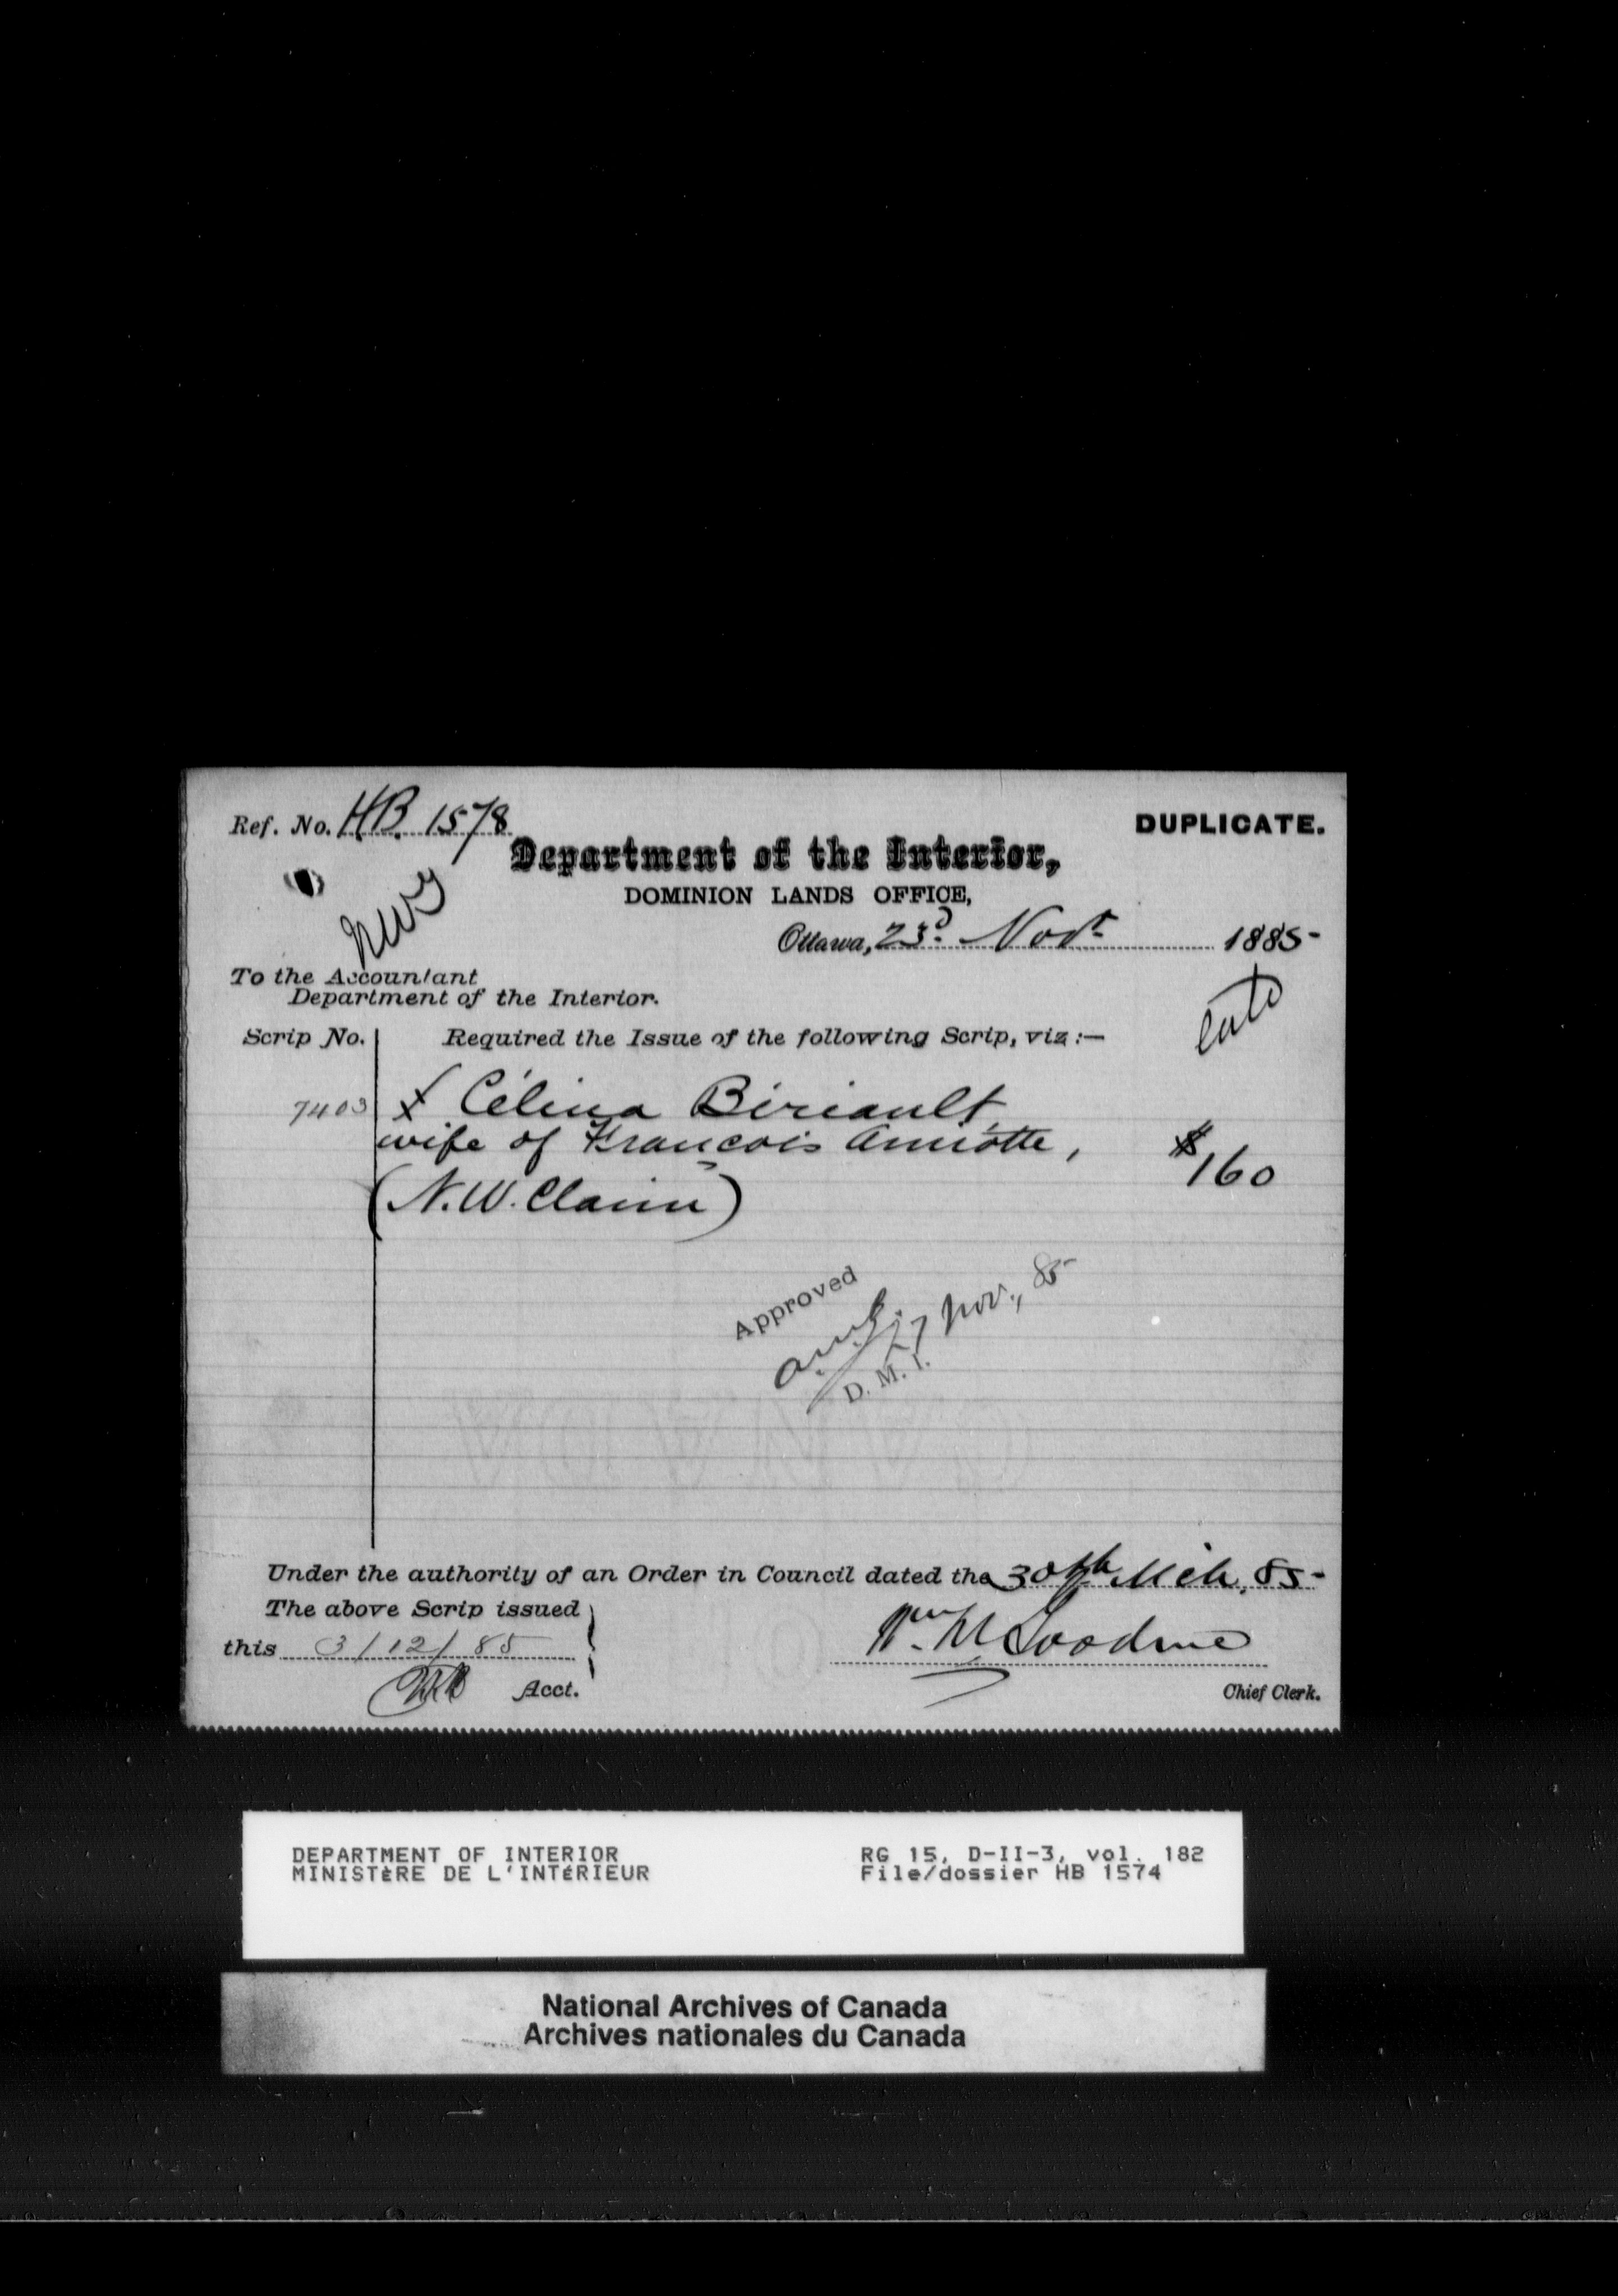 Ref. No. H.B. 1578
DUPLICATE.
Department of the Interior,
DOMINION LANDS OFFICE,
Ottawa, 23d. Novr 1885-
To the Accountant
Department of the Interior.
Scrip No.
Required the Issue of the following Scrip, viz :—
7403 X Célina Bériault
wife of François Amiotte,
$160
(N.W. Claim)
Approved
27 Nov., 85
D. M. I.
Under the authority of an Order in Council dated the 30th Mch. 85-
The above Scrip issued
this 3/12/85
Acct.
Chief Clerk.
DEPARTMENT OF INTERIOR
MINISTÈRE DE L'INTÉRIEUR
RG 15, D-II-3, vol. 182
File/dossier HB 1574
National Archives of Canada
Archives nationales du Canada